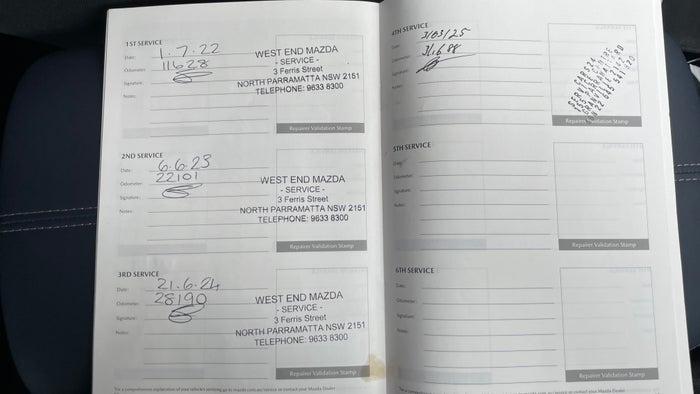 1ST SERVICE
Date: 1.7.22
Odometer: 11628
Signature:
Notes:
WEST END MAZDA
- SERVICE -
3 Ferris Street
NORTH PARRAMATTA NSW 2151
TELEPHONE: 9633 8300
Repairer Validation Stamp
2ND SERVICE
Date: 6.6.23
Odometer: 22101
Signature:
Notes:
WEST END MAZDA
- SERVICE -
3 Ferris Street
NORTH PARRAMATTA NSW 2151
TELEPHONE: 9633 8300
Repairer Validation Stamp
3RD SERVICE
Date: 21.6.24
Odometer: 28190
Signature:
Notes:
WEST END MAZDA
- SERVICE -
3 Ferris Street
NORTH PARRAMATTA NSW 2151
TELEPHONE: 9633 8300
Repairer Validation Stamp
For a comprehensive explanation of your vehicle's servicing go to mazda.com.au/service or contact your Mazda Dealer
4TH SERVICE
Date:
Odometer: 31688
Signature:
Notes:
Repairer Validation Stamp
5TH SERVICE
Date:
Odometer:
Signature:
Notes:
Repairer Validation Stamp
6TH SERVICE
Date:
Odometer:
Signature:
Notes:
Repairer Validation Stamp